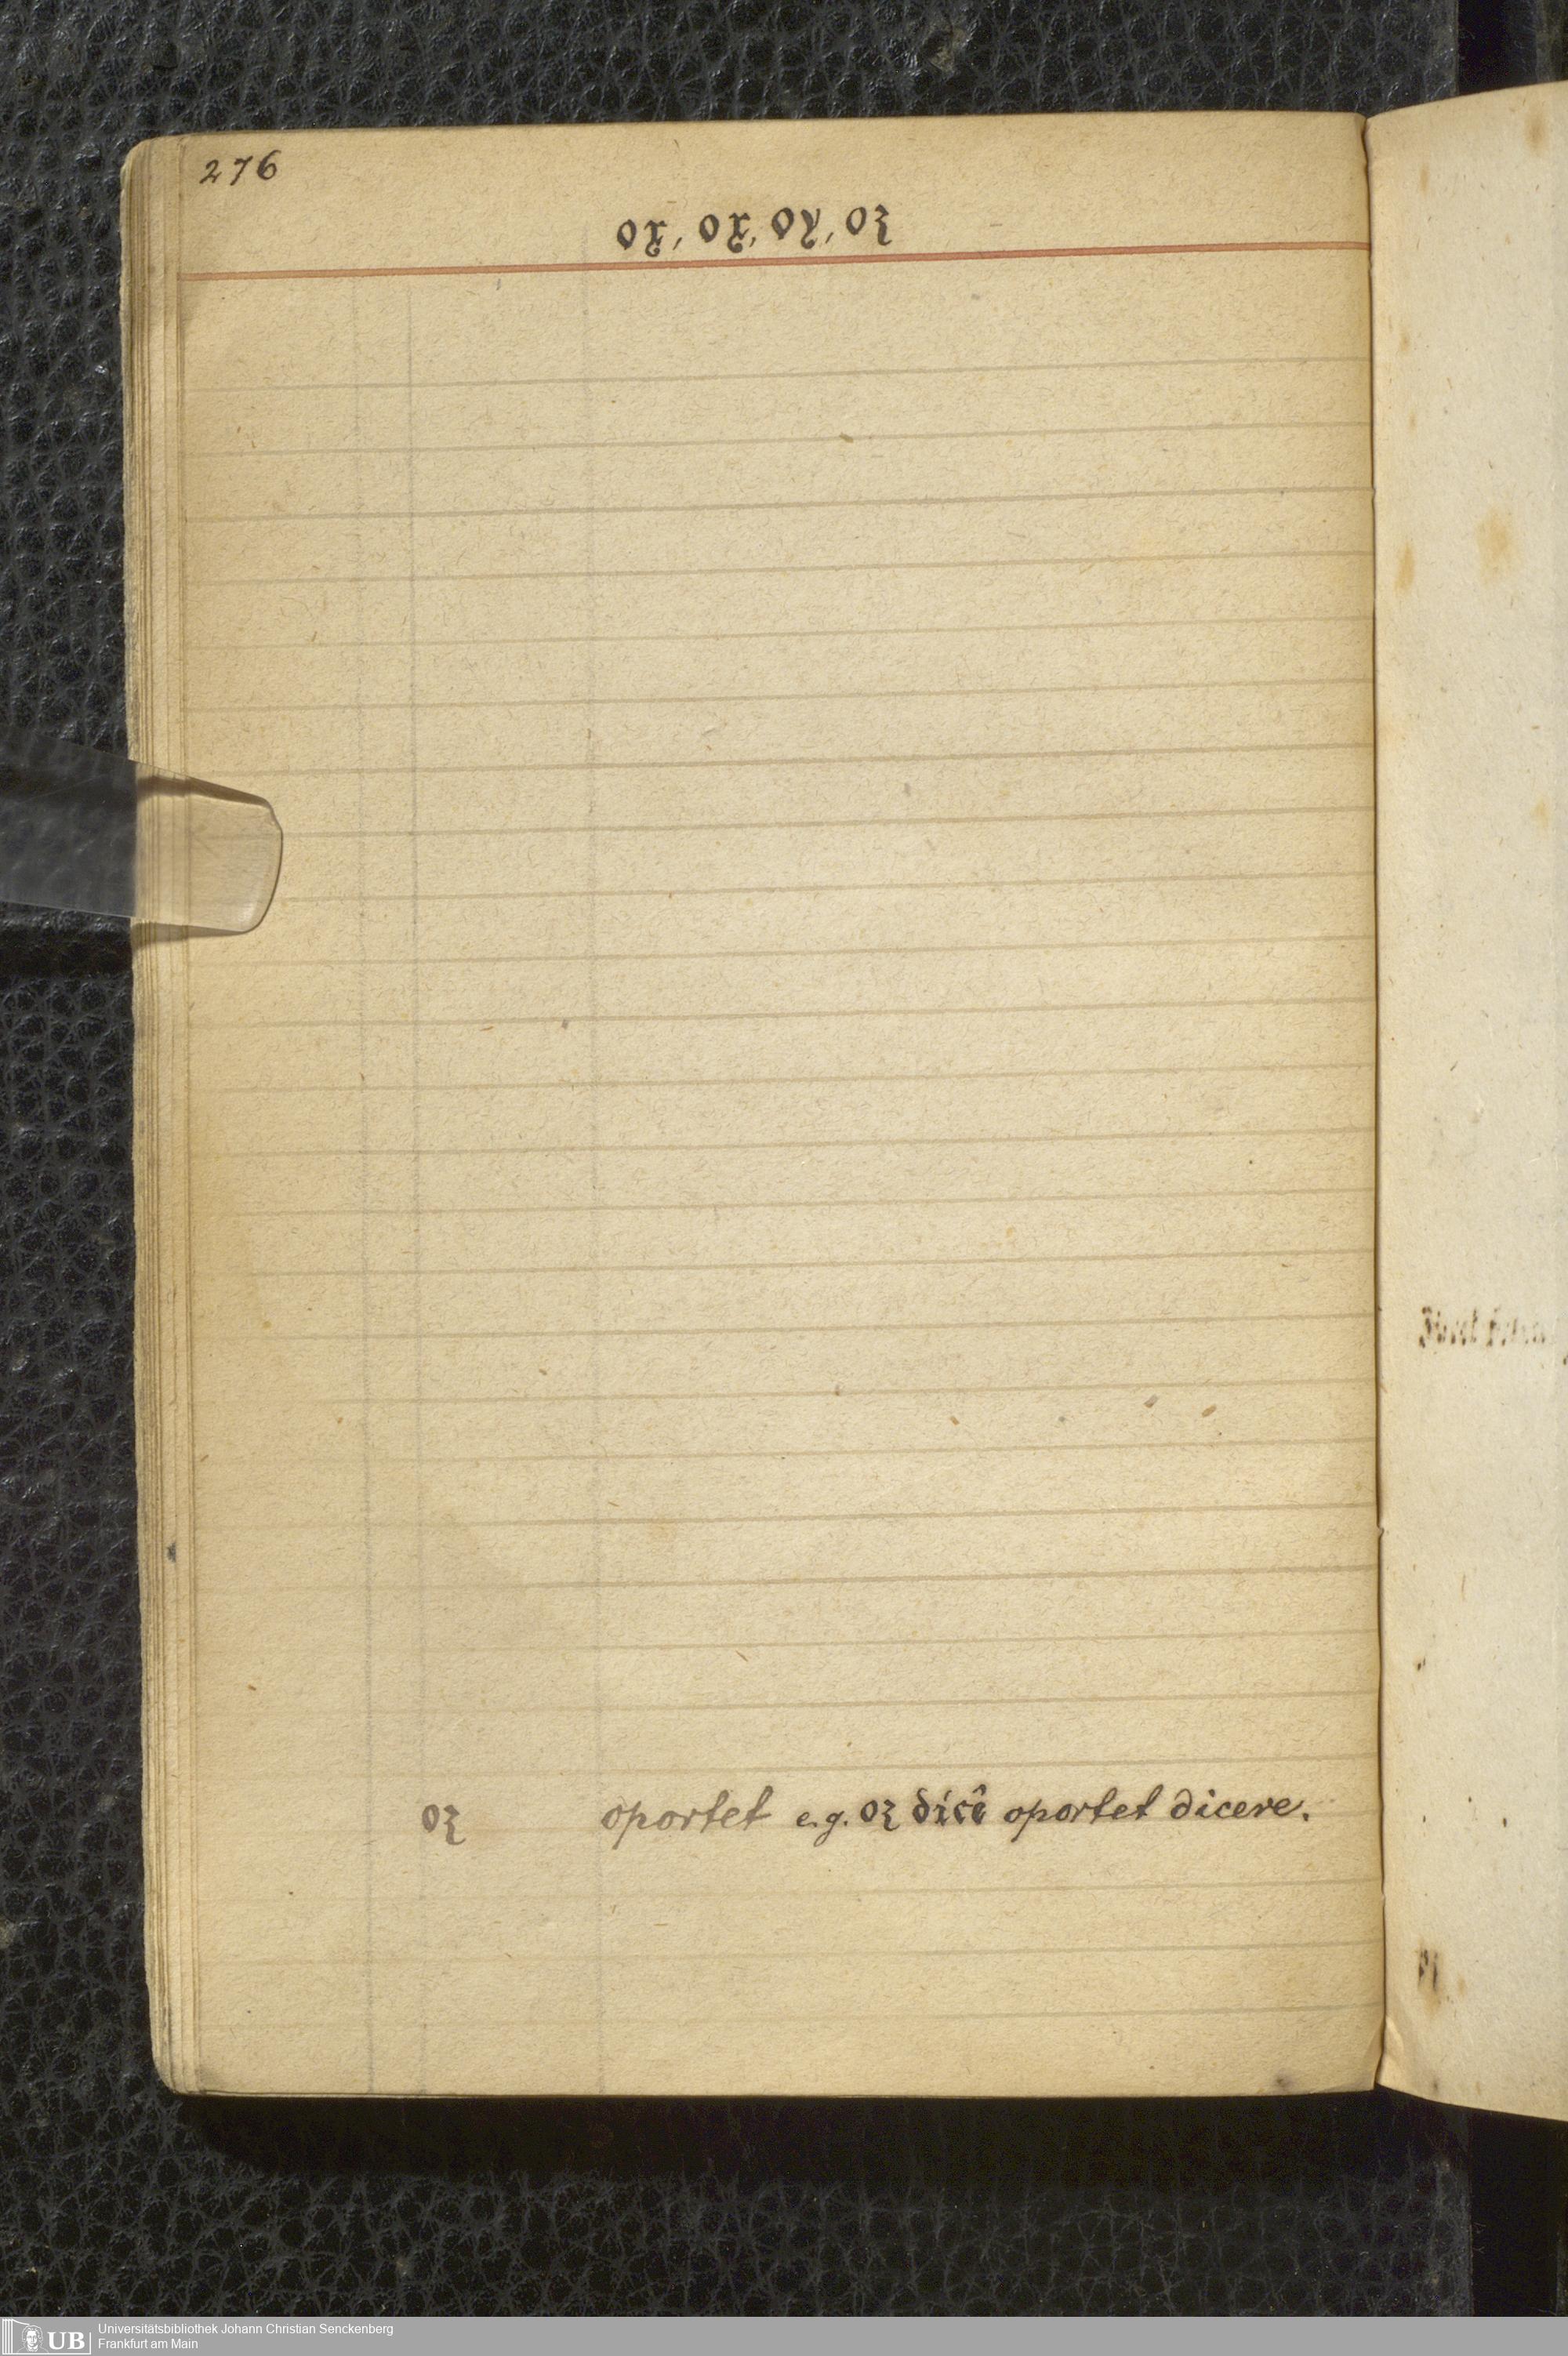 276
oꝫ
oportet e.g. oꝫ dicê oportet dicere.
UB
Universitätsbibliothek Johann Christian Senckenberg
Frankfurt am Main